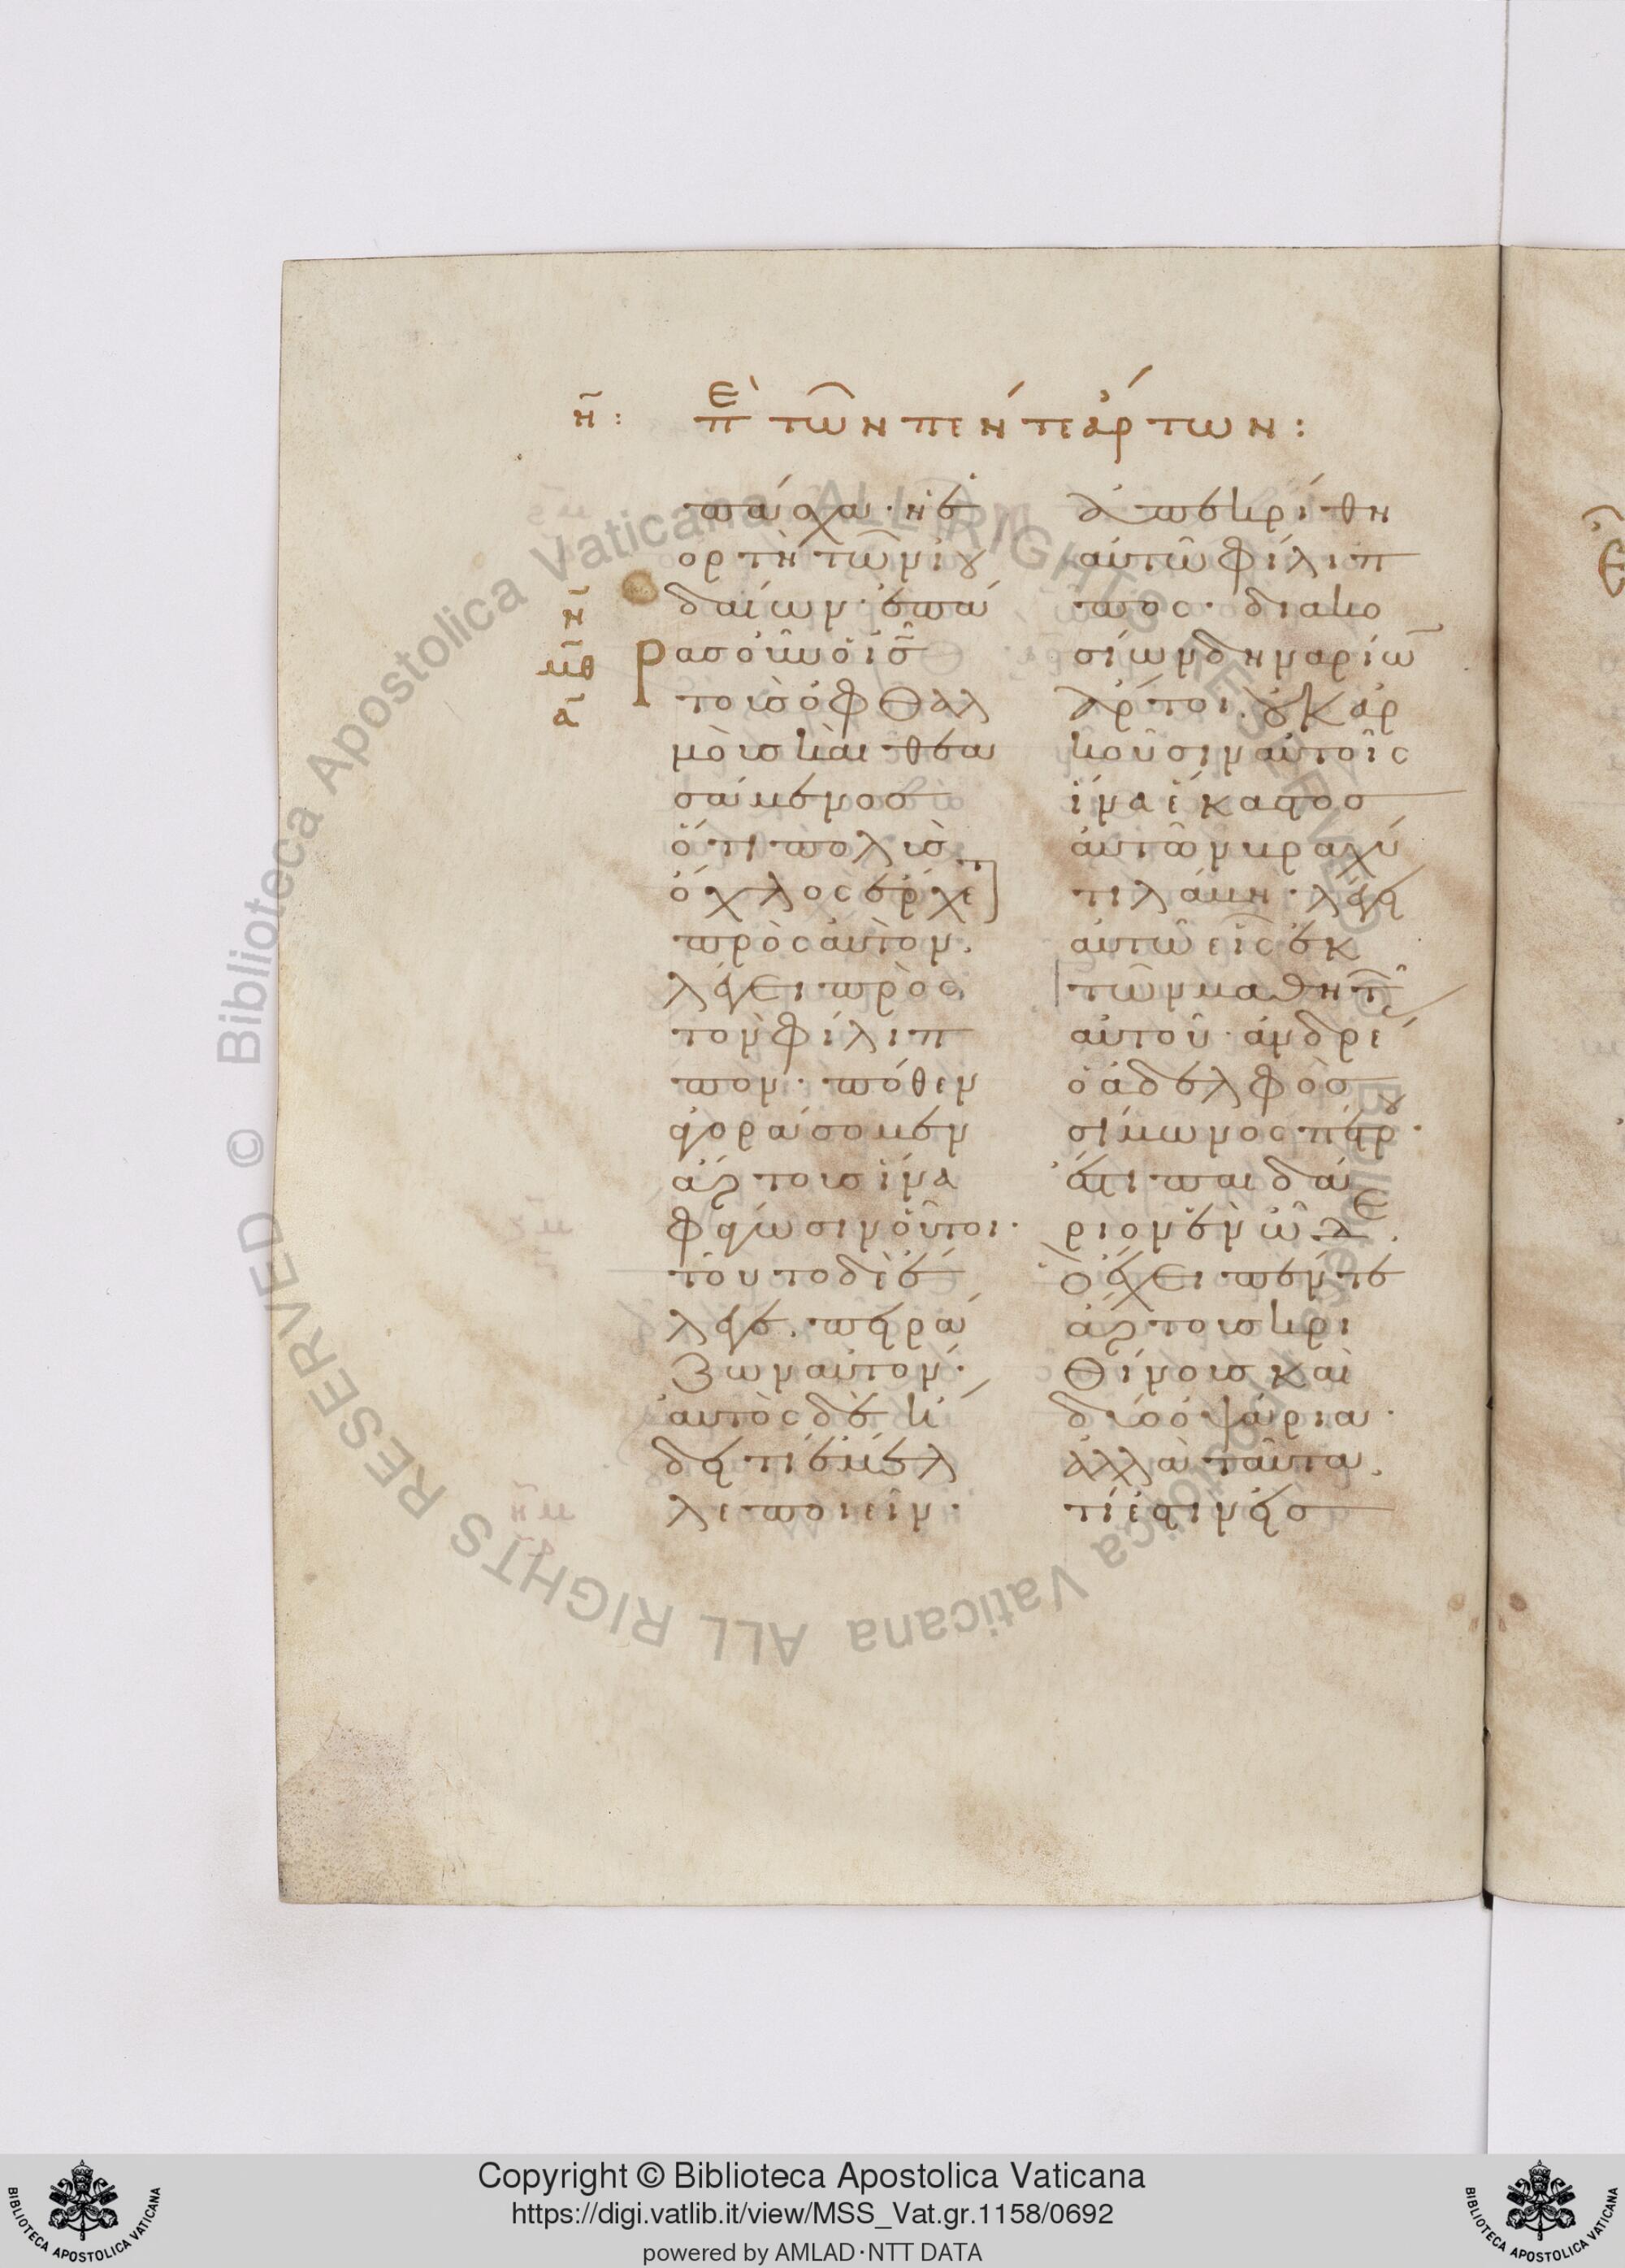 η̄: πὲ τῶν πέντε ἄρτων:
πάσχα· ἡ ἑ
ορτὴ τῶν ἰου
δαίων· ἐπά
η̄
ρασ οὖν ὁ ισ̄
μ̄θ
τοὺσ ὀφθαλ
ᾱ
μοὺσ καὶ θεα
σάμενοσ
ὅτι πολὺσ
ὄχλος ἔρχεται
πρὸς αὐτὸν.
λέγει πρὸς
τὸν φίλιπ
πον· πόθεν
ἀγοράσομεν
ἄρτουσ ἵνα
φάγωσιν οὗτοι·
τοῦτο δὲ ἔ
λεγε. πειρά
ζων αὐτόν·
αὐτὸς δὲ ἤ
δει τί ἔμελ
λε ποιεῖν·
ἀπεκρίθη
αὐτῶ φίλιπ
πος· διακο
σίων δηναρίω̄
ἄρτοι. οὐκ ἀρ
κοῦσιν αὐτοῖς
ἵνα ἕκαστοσ
αὐτῶν βραχύ
τι λάβη· λέγει
αὐτῶ εἷς ἐκ
τῶν μαθητῶν
αὐτοῦ· ἀνδρέ
ὁ ἀδελφὸσ
σίμωνος πέτρου·
ἔστι παιδά
ριον ἓν ὧδε.
ὃ ἔχει πέντε
ἄρτουσ κρι
θίνουσ καὶ
δύο ὀψάρια·
ἀλλὰ ταῦτα.
τί ἐστιν εἰσ
Copyright © Biblioteca Apostolica Vaticana
https://digi.vatlib.it/view/MSS_Vat.gr.1158/0692
powered by AMLAD·NTT DATA